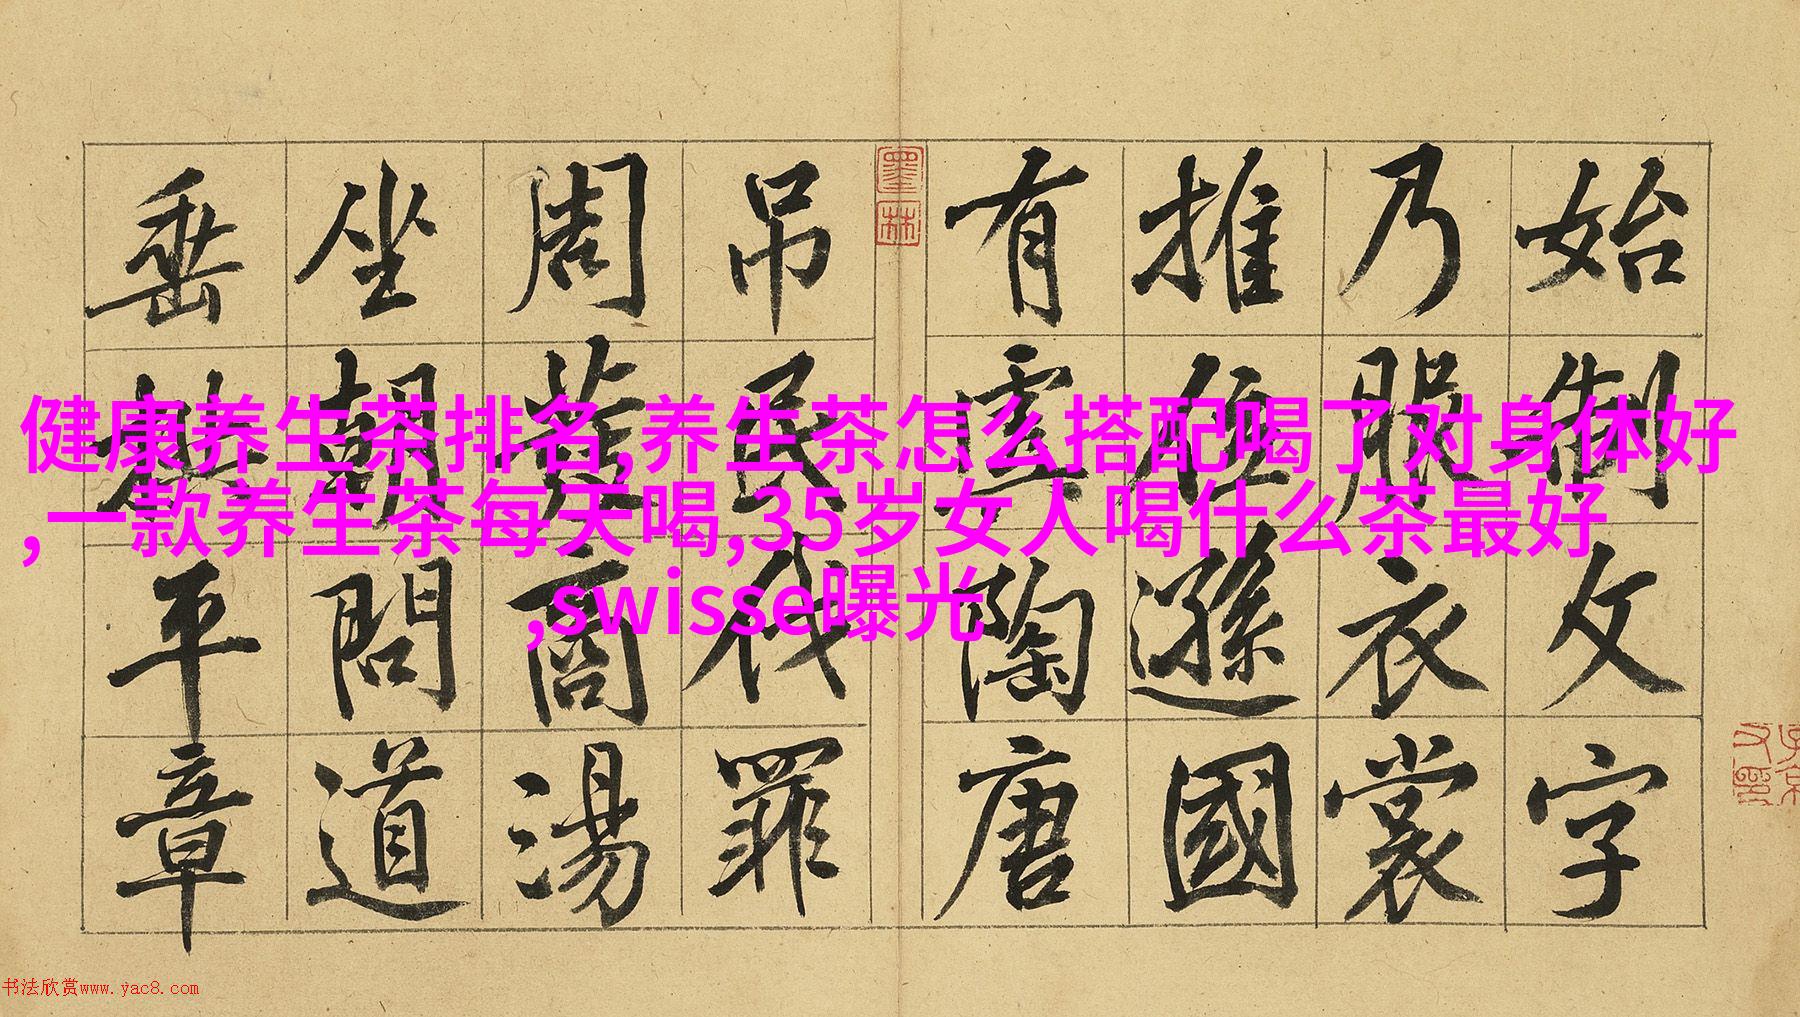 健康养生茶排名,养生茶怎么搭配喝了对身体好
,一款养生茶每天喝,35岁女人喝什么茶最好
,swisse曝光
始制文字
乃服衣裳
推位遜國
有虞陶唐
吊民伐罪
周發商湯
坐朝問道
垂拱平章
墨林
书法欣赏www.yac8.com